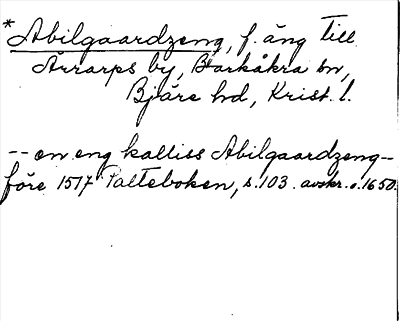 * Abilgaardzeng, f. äng till
Årrarps by, Barkåkra sn,
Bjäre hd, Krist. l.
-- en eng kalliss Abilgaardzeng --
före 1517 Palteboken, s. 103. avskr. o. 1650.